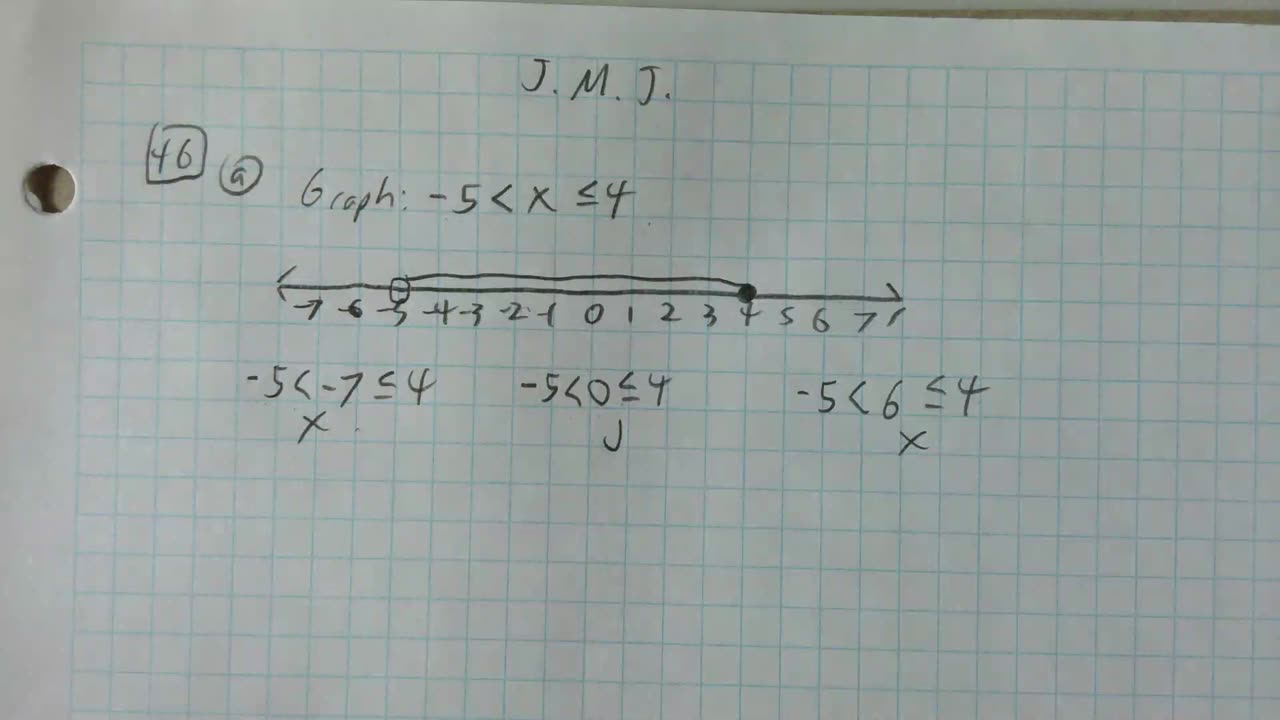 J.M.J.
46 a Graph: -5 < x ≤ 4
-7 -6 -5 -4 -3 -2 -1 0 1 2 3 4 5 6 7
-5 < -7 ≤ 4 -5 < 0 ≤ 4 -5 < 6 ≤ 4
x ✓ x